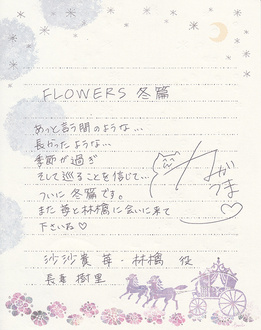 FLOWERS 冬篇
あっと言う間のような…
長かったような…
季節が過ぎ
そして巡ることを信じて…
ついに 冬篇です。
また 苺と林檎に会いに来て
下さいね♡
ながつま♡
沙沙貴 苺・林檎 役
長妻 樹里